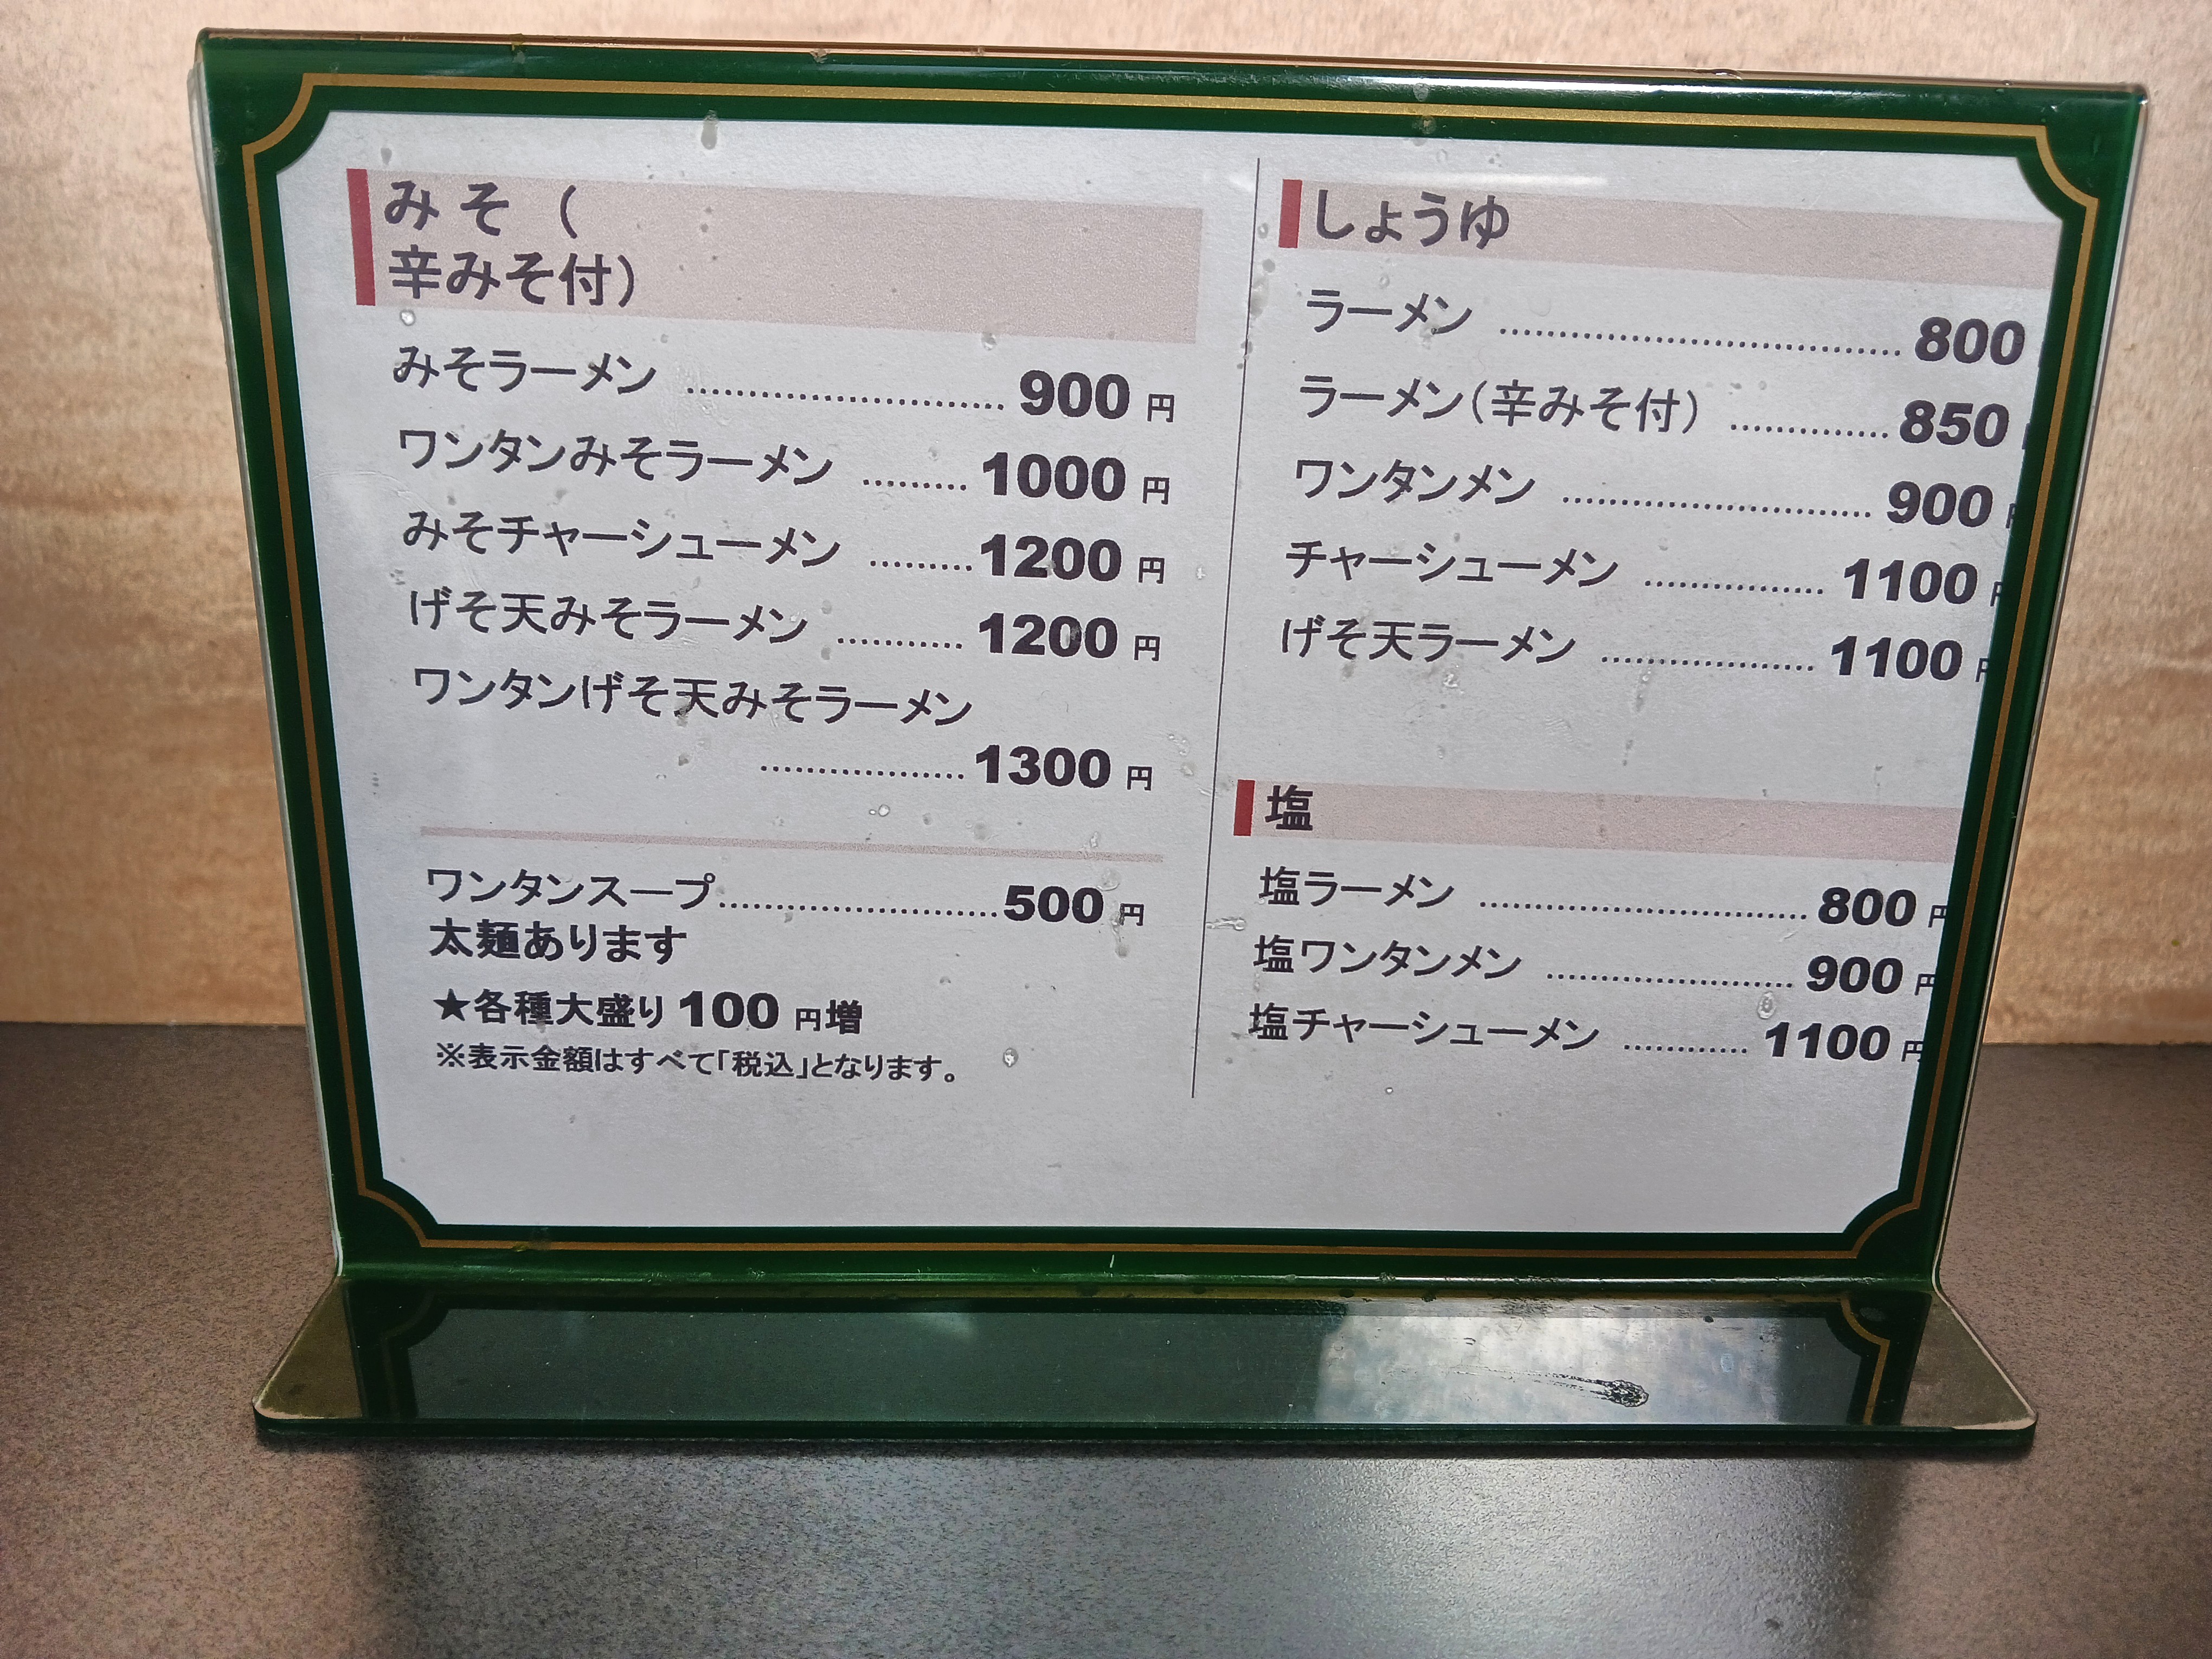 みそ（
辛みそ付）
みそラーメン ........................... 900 円
ワンタンみそラーメン ......... 1000 円
みそチャーシューメン ......... 1200 円
げそ天みそラーメン ........... 1200 円
ワンタンげそ天みそラーメン
.................. 1300 円
ワンタンスープ........................500 円
太麺あります
★各種大盛り 100 円増
※表示金額はすべて「税込」となります。
しょうゆ
ラーメン ................................... 800
ラーメン（辛みそ付） .............. 850
ワンタンメン ........................... 900 円
チャーシューメン ................ 1100 円
げそ天ラーメン ................... 1100 円
塩
塩ラーメン ............................. 800 円
塩ワンタンメン ...................... 900 円
塩チャーシューメン ............ 1100 円